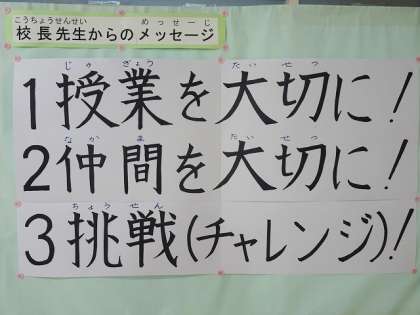 こうちょうせんせい めっせーじ
校長先生からのメッセージ
じゅ ぎょう たい せつ
1授業を大切に!
なか ま たい せつ
2仲間を大切に!
ちょう せん
3挑戦(チャレンジ)!